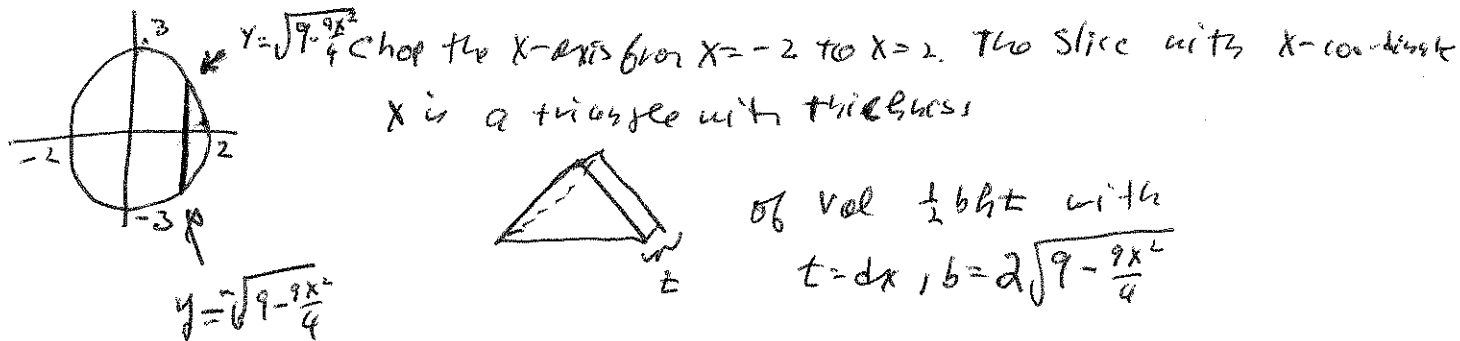 3
y=√(9-9x²/4) Chop the x-axis from x=-2 to x=2. The slice with x-coordinate
x is a triangle with thickness
-2
2
-3
of vol ½bht with
t
t=dx, b=2√(9-9x²/4)
y=-√(9-9x²/4)